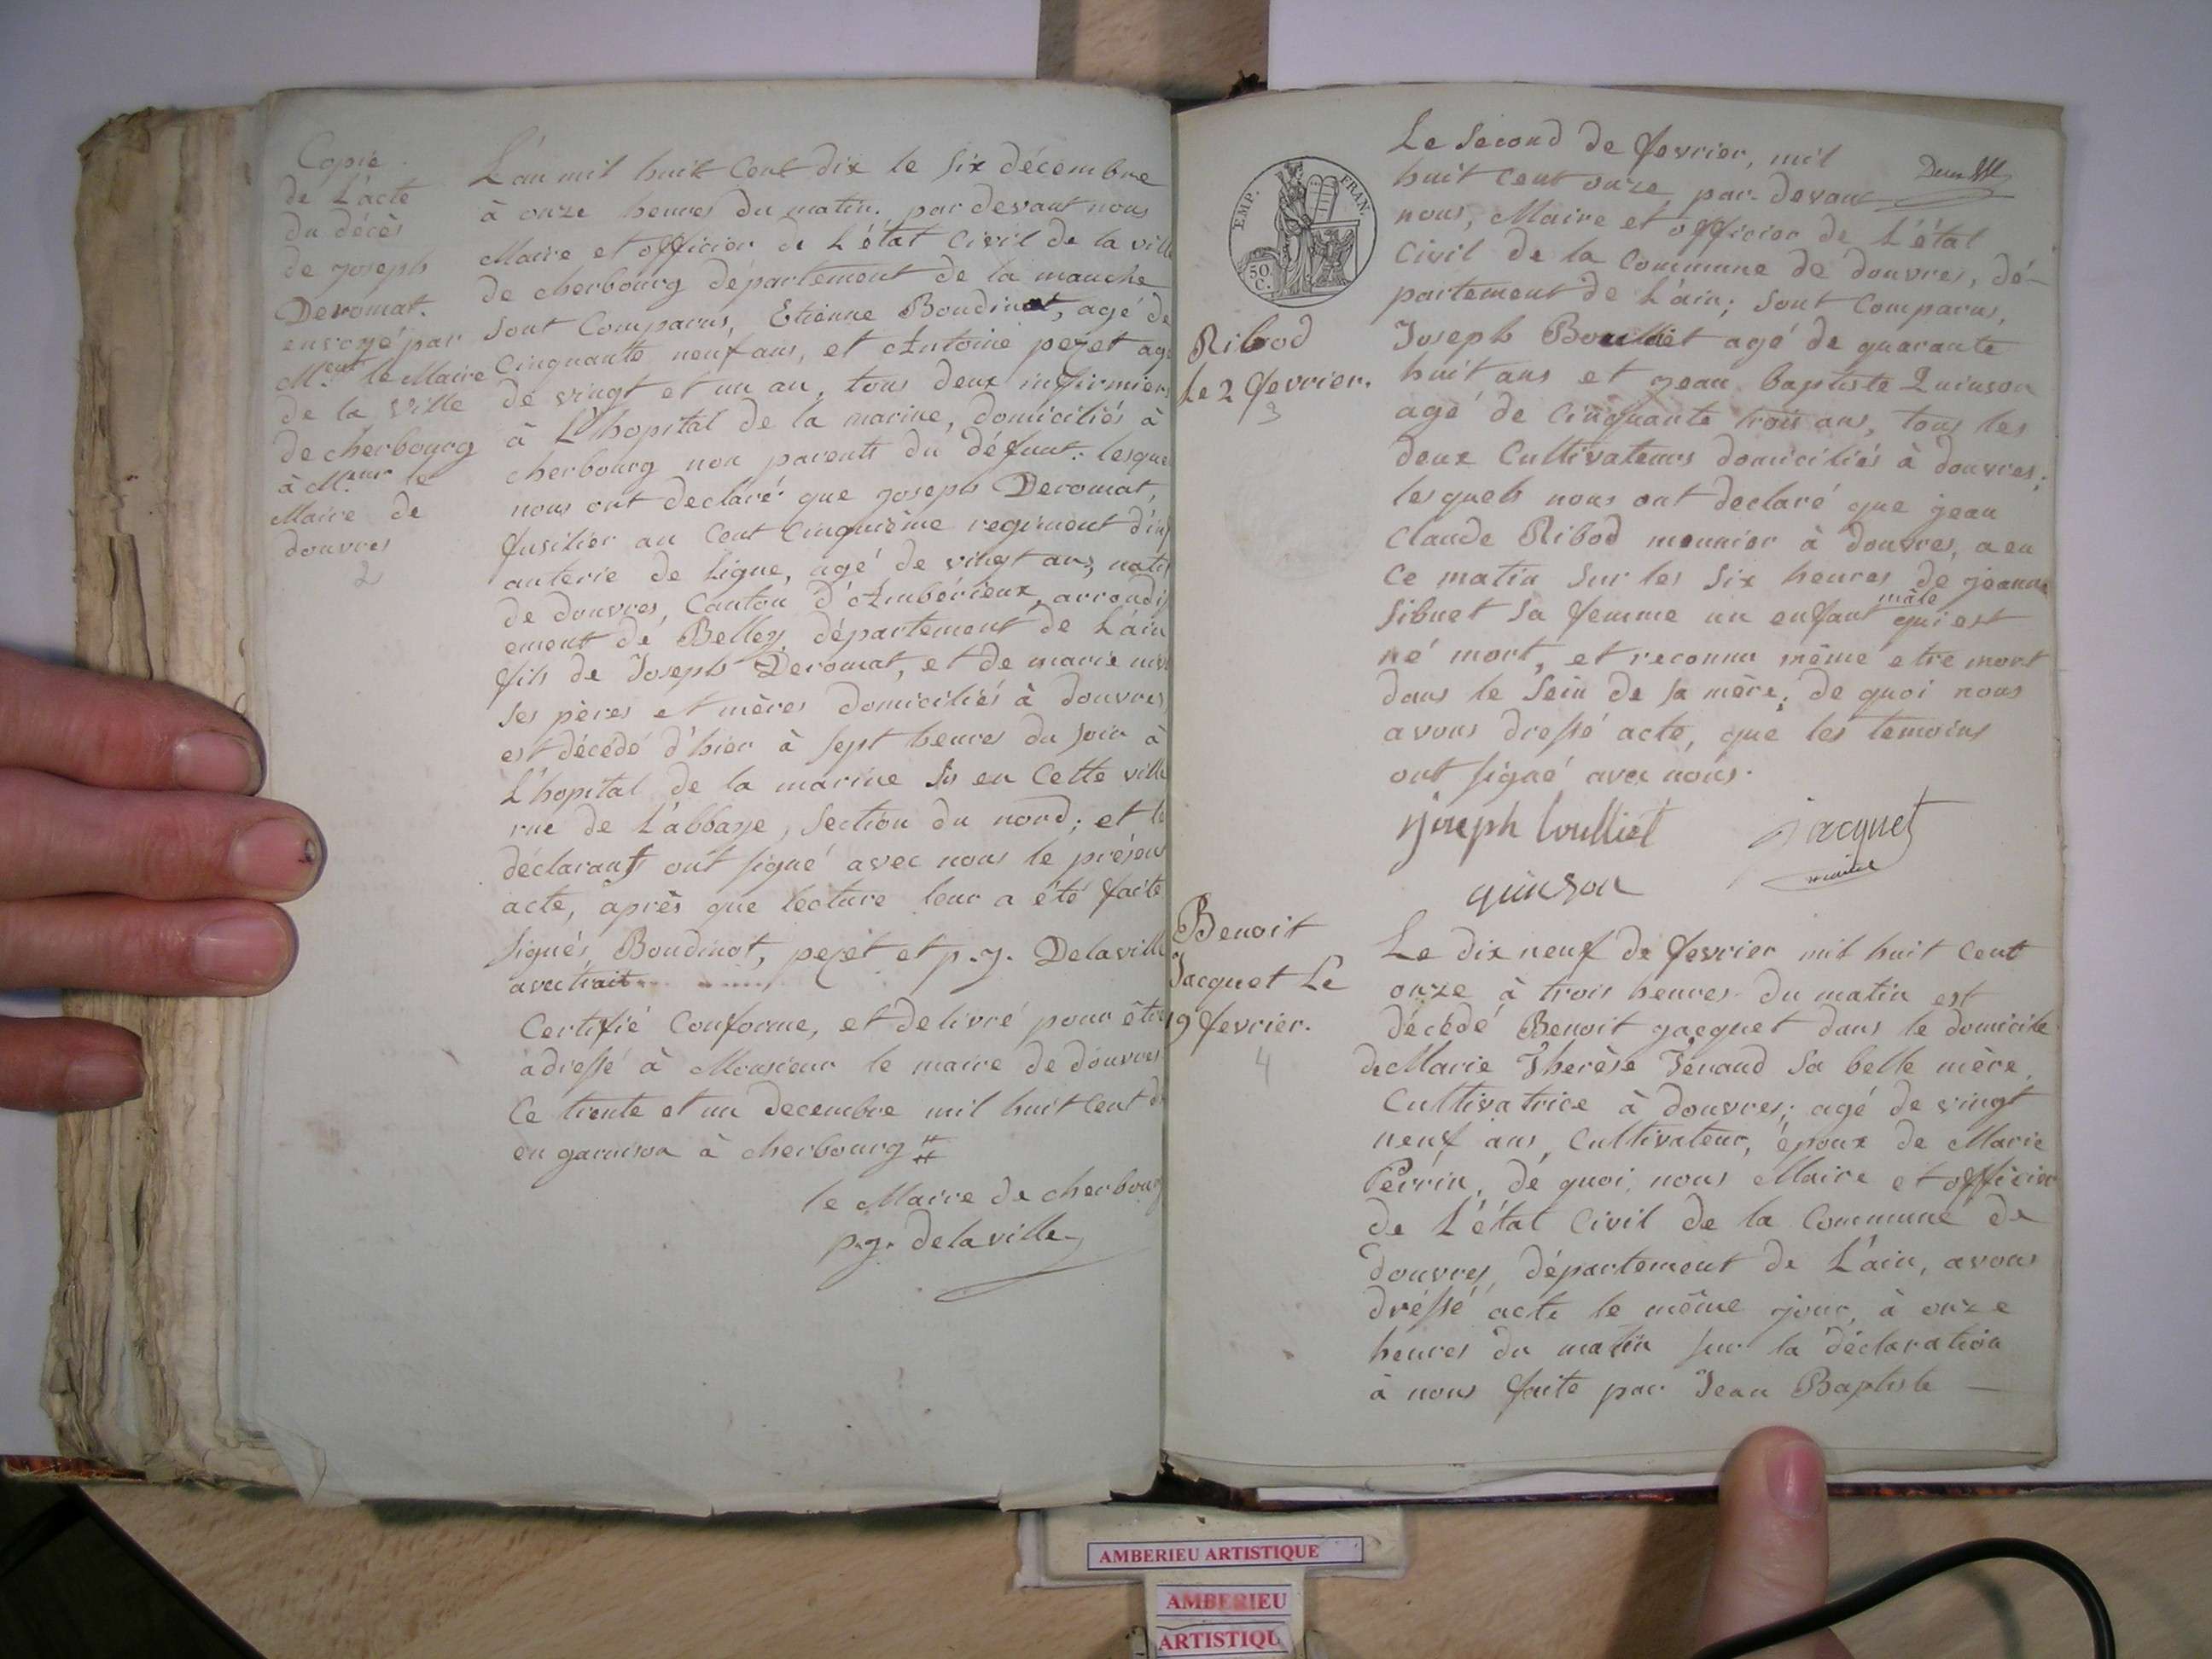 Copie
de L'acte
du décès
de joseph
Deromat.
envoyé par
le Maire
de la Ville
de cherbourg
à le
Maire de
douvres
2
L'an mil huit Cent dix le six décembre
à onze heures du matin. par devant nous
Maire et officier de L'état Civil de la vill
de cherbourg département de la manche
sont Comparus, Etienne Boudinot, agé de
Cinquante neuf ans, et Antoine pezet agé
de vingt et un an, tous deux infirmiers
à L'hopital de la marine, domiciliés à
cherbourg non parents du défunt. lesque
nous ont declaré que joseph Deromat,
fusilier au Cent Cinquième regiment d'inf
anterie de Ligne, agé de vingt ans, natif
de douvres, Canton d'Ambérieux, arrondis
ement de Belley, département de L'ain
fils de Joseph Deromat, et de marie
ses pères et mères domiciliés à douvres
est décédé d'hier à sept heures du soir à
L'hopital de la marine sis en Cette ville
rue de L'abbaye, Section du nord; et le
déclarants ont signé avec nous le présent
acte, après que lecture leur a été faite
signés, Boudinot, pezet et p. j. Delaville
avec trait
Certifié Conforme, et delivré pour être
adressé à Monsieur le maire de douvres
Ce trente et un decembre mil huit cent d
en garnison à cherbourg
le Maire de cherbourg
p. j. delaville
EMP. FRAN.
50 C.
Ribod
Le 2 fevrier.
3
Le Second de fevrier, mil
huit Cent onze, par-devant
nous, Maire et officier de L'état
Civil de la Commune de douvres, dé-
partement de L'ain; sont Comparus,
Joseph Boulliet agé de quarante
huit ans et jean baptiste Quinson
agé de Cinquante trois ans, tous les
deux Cultivateurs domiciliés à douvres;
lesquels nous ont declaré que jean
Claude Ribod meunier à douvres, a eu
Ce matin sur les six heures de jeanne
sibuet sa femme un enfant mâle qui est
né mort, et reconnu même etre mort
dans le sein de sa mère; de quoi nous
avons dressé acte, que les temoins
ont signé avec nous.
joseph boulliet jacquet
maire
quinson
Benoit
Jacquet Le
19 fevrier.
4
Le dix neuf de fevrier mil huit Cent
onze à trois heures du matin est
décédé Benoit jacquet dans le domicile
de Marie Therèse Tenand sa belle mère,
Cultivatrice à douvres; agé de vingt
neuf ans, Cultivateur, époux de Marie
Perrin, de quoi, nous Maire et officier
de L'état Civil de la Commune de
Douvres, département de L'ain, avons
dréssé acte le même jour, à onze
heures du matin sur la déclaration
à nous faite par Jean Baptiste —
AMBERIEU ARTISTIQUE
AMBERIEU
ARTISTIQU